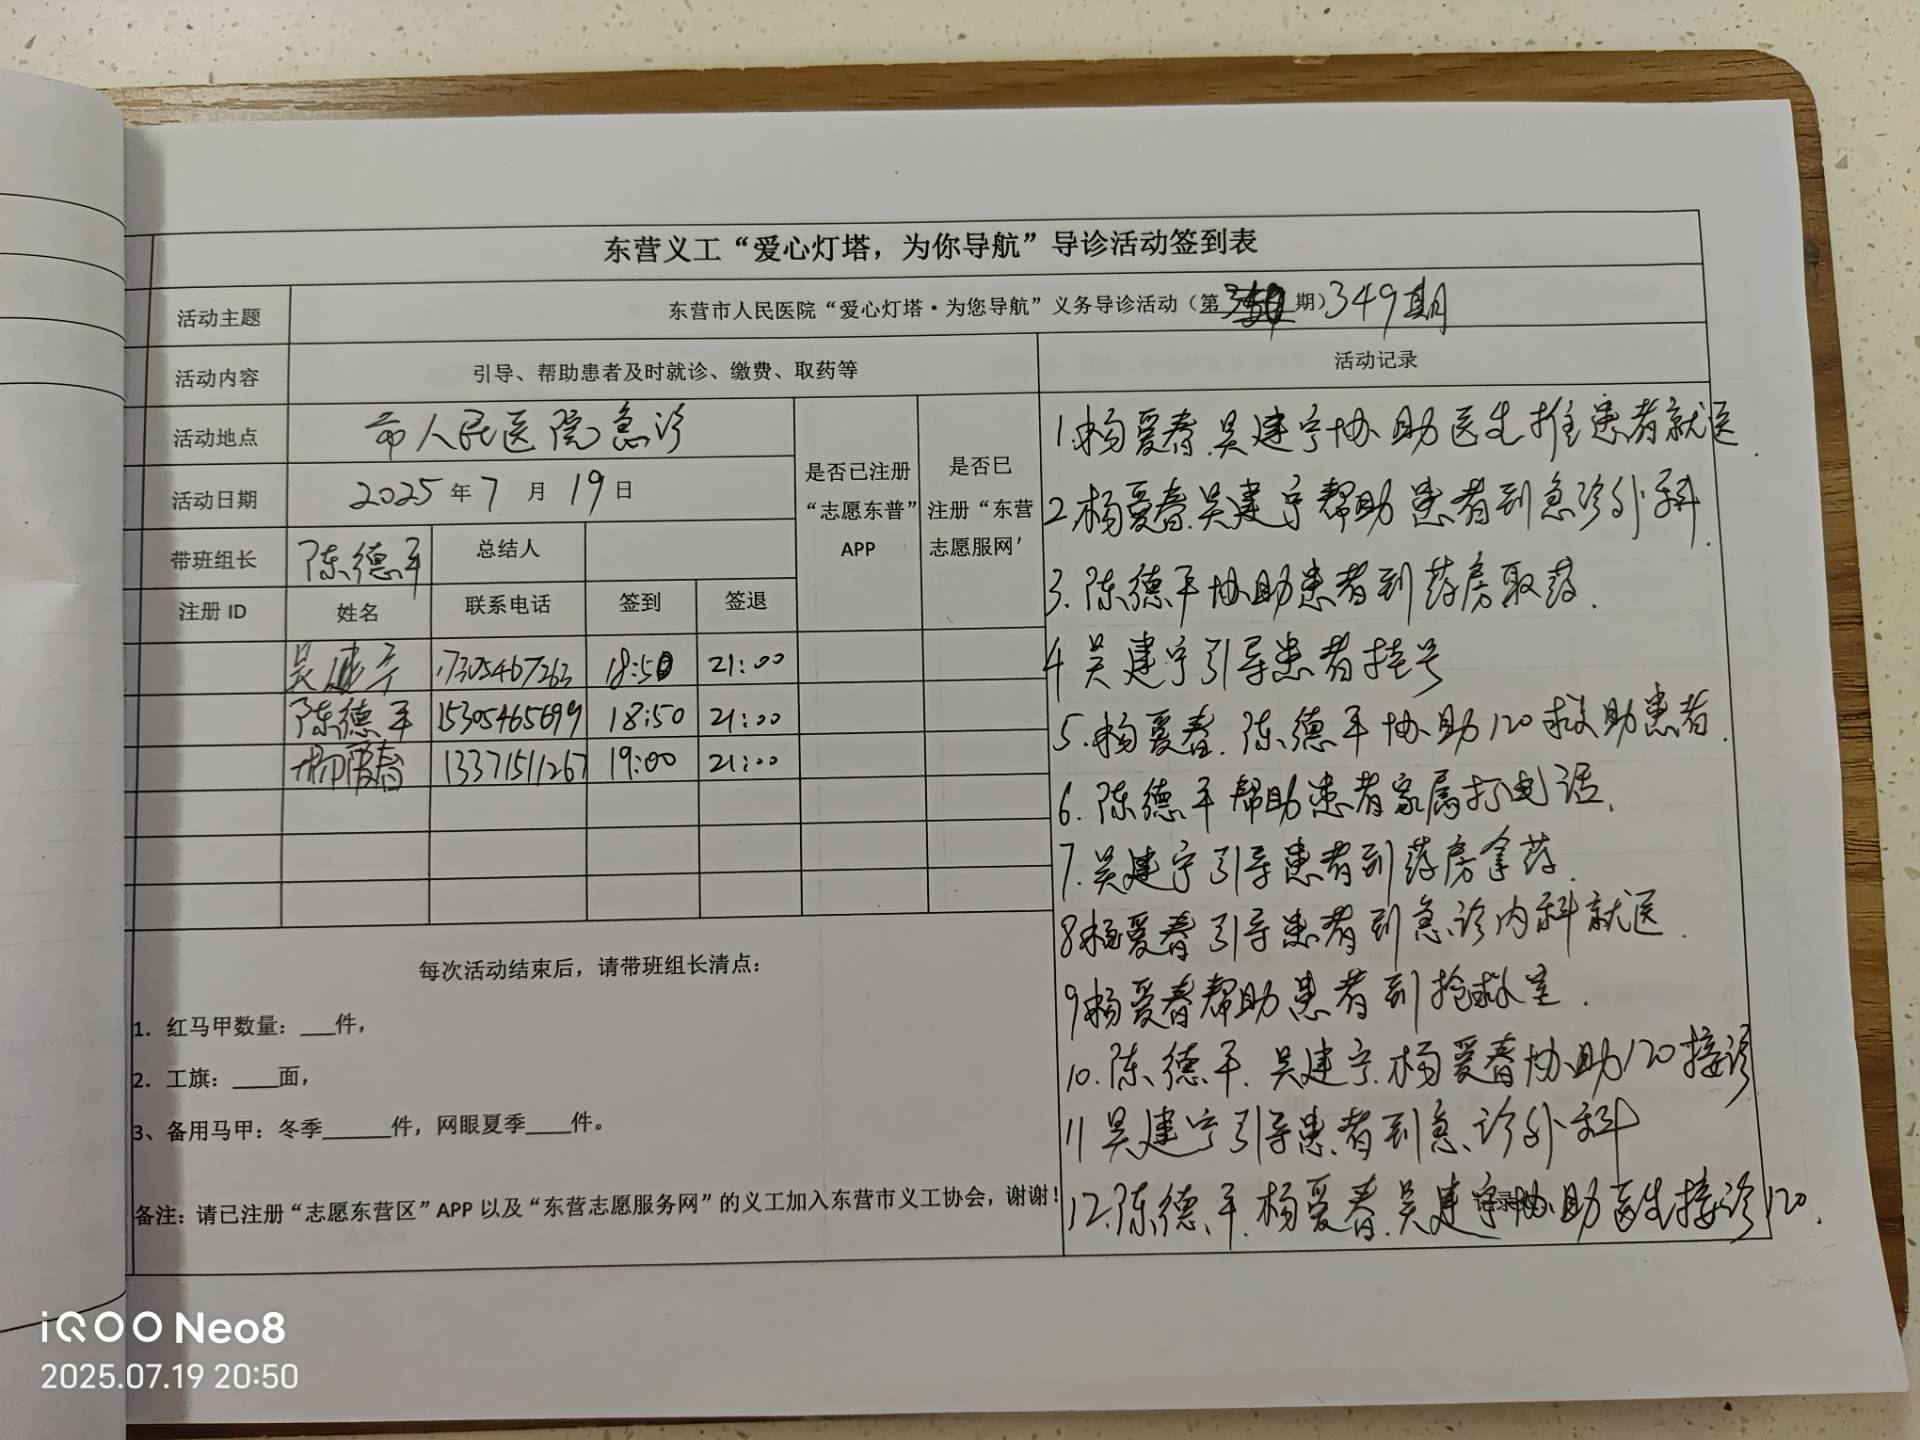 东营义工“爱心灯塔，为你导航”导诊活动签到表
活动主题 东营市人民医院“爱心灯塔·为您导航”义务导诊活动（第350期）349期
活动内容 引导、帮助患者及时就诊、缴费、取药等 活动记录
活动地点 市人民医院急诊
活动日期 2025年7月19日
是否已注册“志愿东普”APP
是否已注册“东营志愿服网'
带班组长 陈德平 总结人
注册 ID 姓名 联系电话 签到 签退
吴建宁 17305467263 18:50 21:00
陈德平 15305465699 18:50 21:00
杨爱春 13371511267 19:00 21:00
1.杨爱春.吴建宁协助医生推患者就医.
2.杨爱春.吴建宁帮助患者到急诊外科.
3.陈德平协助患者到药房取药.
4 吴建宁引导患者挂号
5.杨爱春.陈德平协助120救助患者.
6.陈德平帮助患者家属打电话.
7.吴建宁引导患者到药房拿药.
8杨爱春引导患者到急诊内科就医.
9杨爱春帮助患者到抢救室.
10.陈德平.吴建宁.杨爱春协助120接诊
11吴建宁引导患者到急诊外科
12.陈德平.杨爱春.吴建宁协助医生接诊120.
每次活动结束后，请带班组长清点：
1. 红马甲数量：___件，
2. 工旗：____面，
3、备用马甲：冬季______件，网眼夏季____件。
备注：请已注册“志愿东营区”APP以及“东营志愿服务网”的义工加入东营市义工协会，谢谢！
iQOO Neo8
2025.07.19 20:50